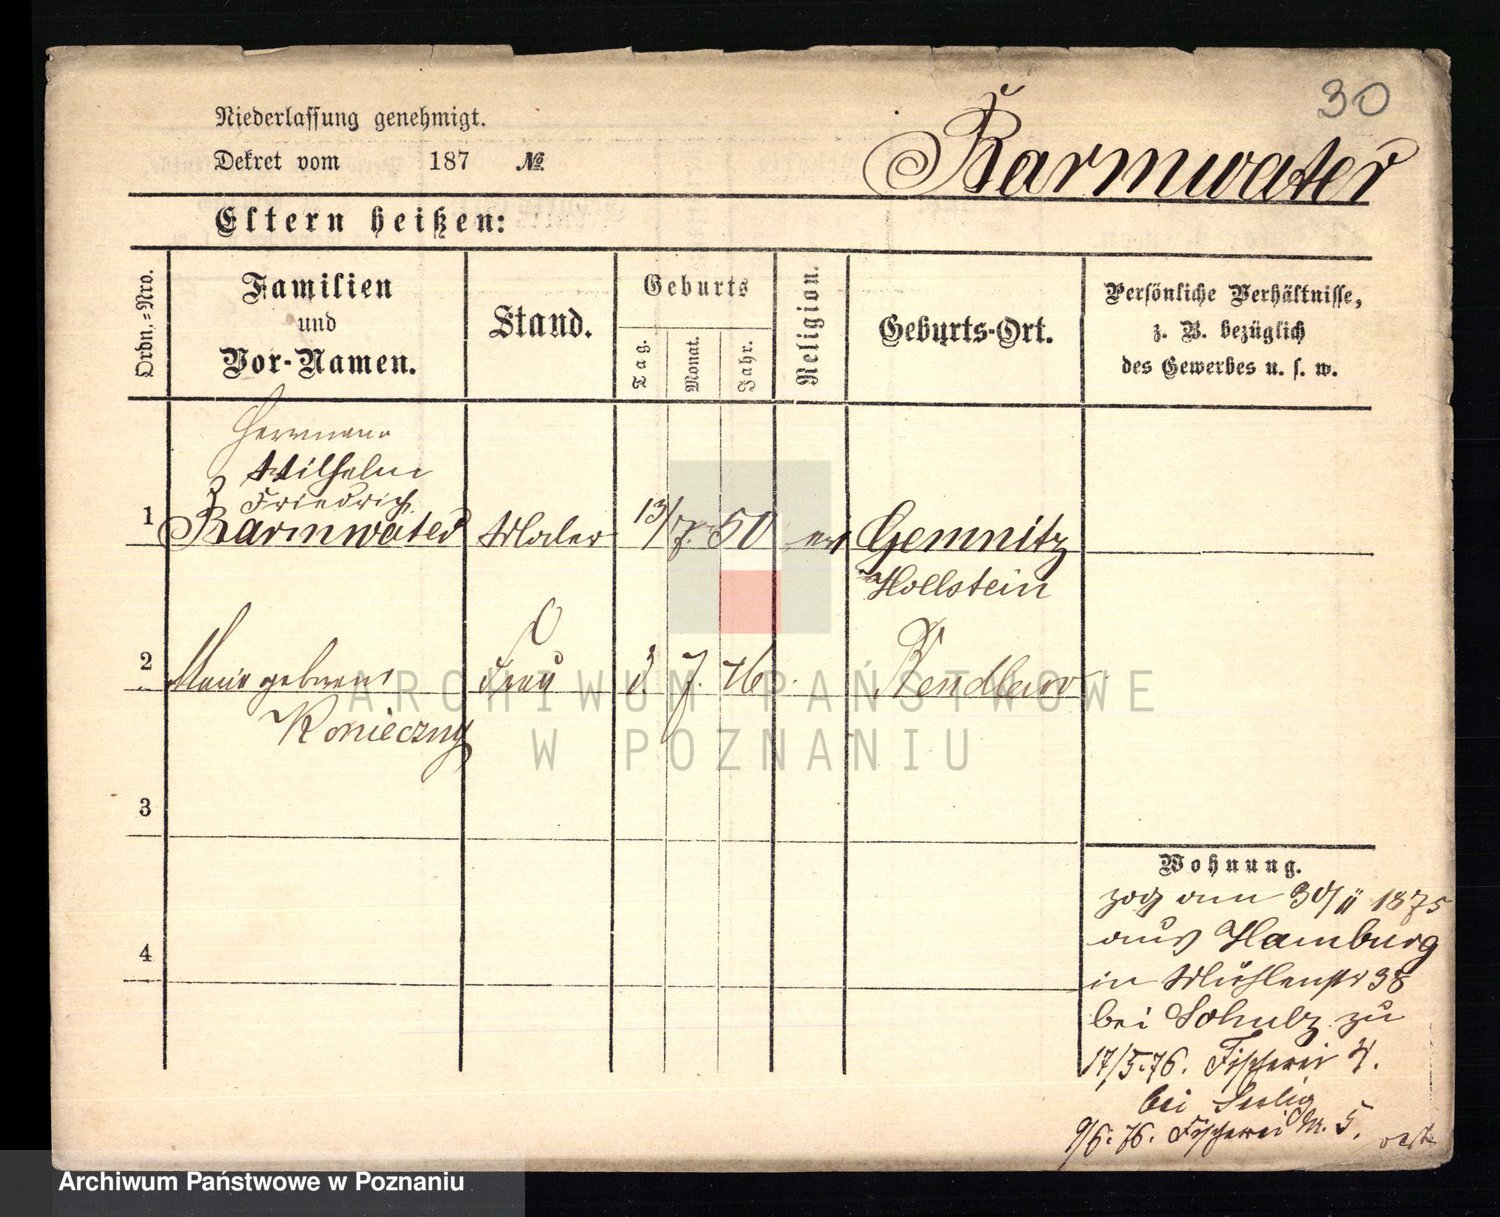 30
Niederlassung genehmigt.
Dekret vom 187 №
Barmwater
Eltern heißen:
Ordn.-Nro.
Familien
und
Vor-Namen.
Stand.
Geburts
Tag.
Monat.
Jahr.
Religion.
Geburts-Ort.
Persönliche Verhältnisse,
z. B. bezüglich
des Gewerbes u. s. w.
Herrmann
Wilhelm
Friedrich
1 Barmwater Maler 13/ 7. 50 ev Gemnitz
Hollstein
2 Marie geborene Frau 3. 7. 76
Konieczny
3
4
Wohnung.
zog am 30/11 1875
aus Hamburg
in Mühlenstr 38
bei Schulz zu
17/5.76. Fischerei 4.
bei Seelig
9/6.76. Fischerei Nr. 5.
ARCHIWUM PAŃSTWOWE
W POZNANIU
Archiwum Państwowe w Poznaniu